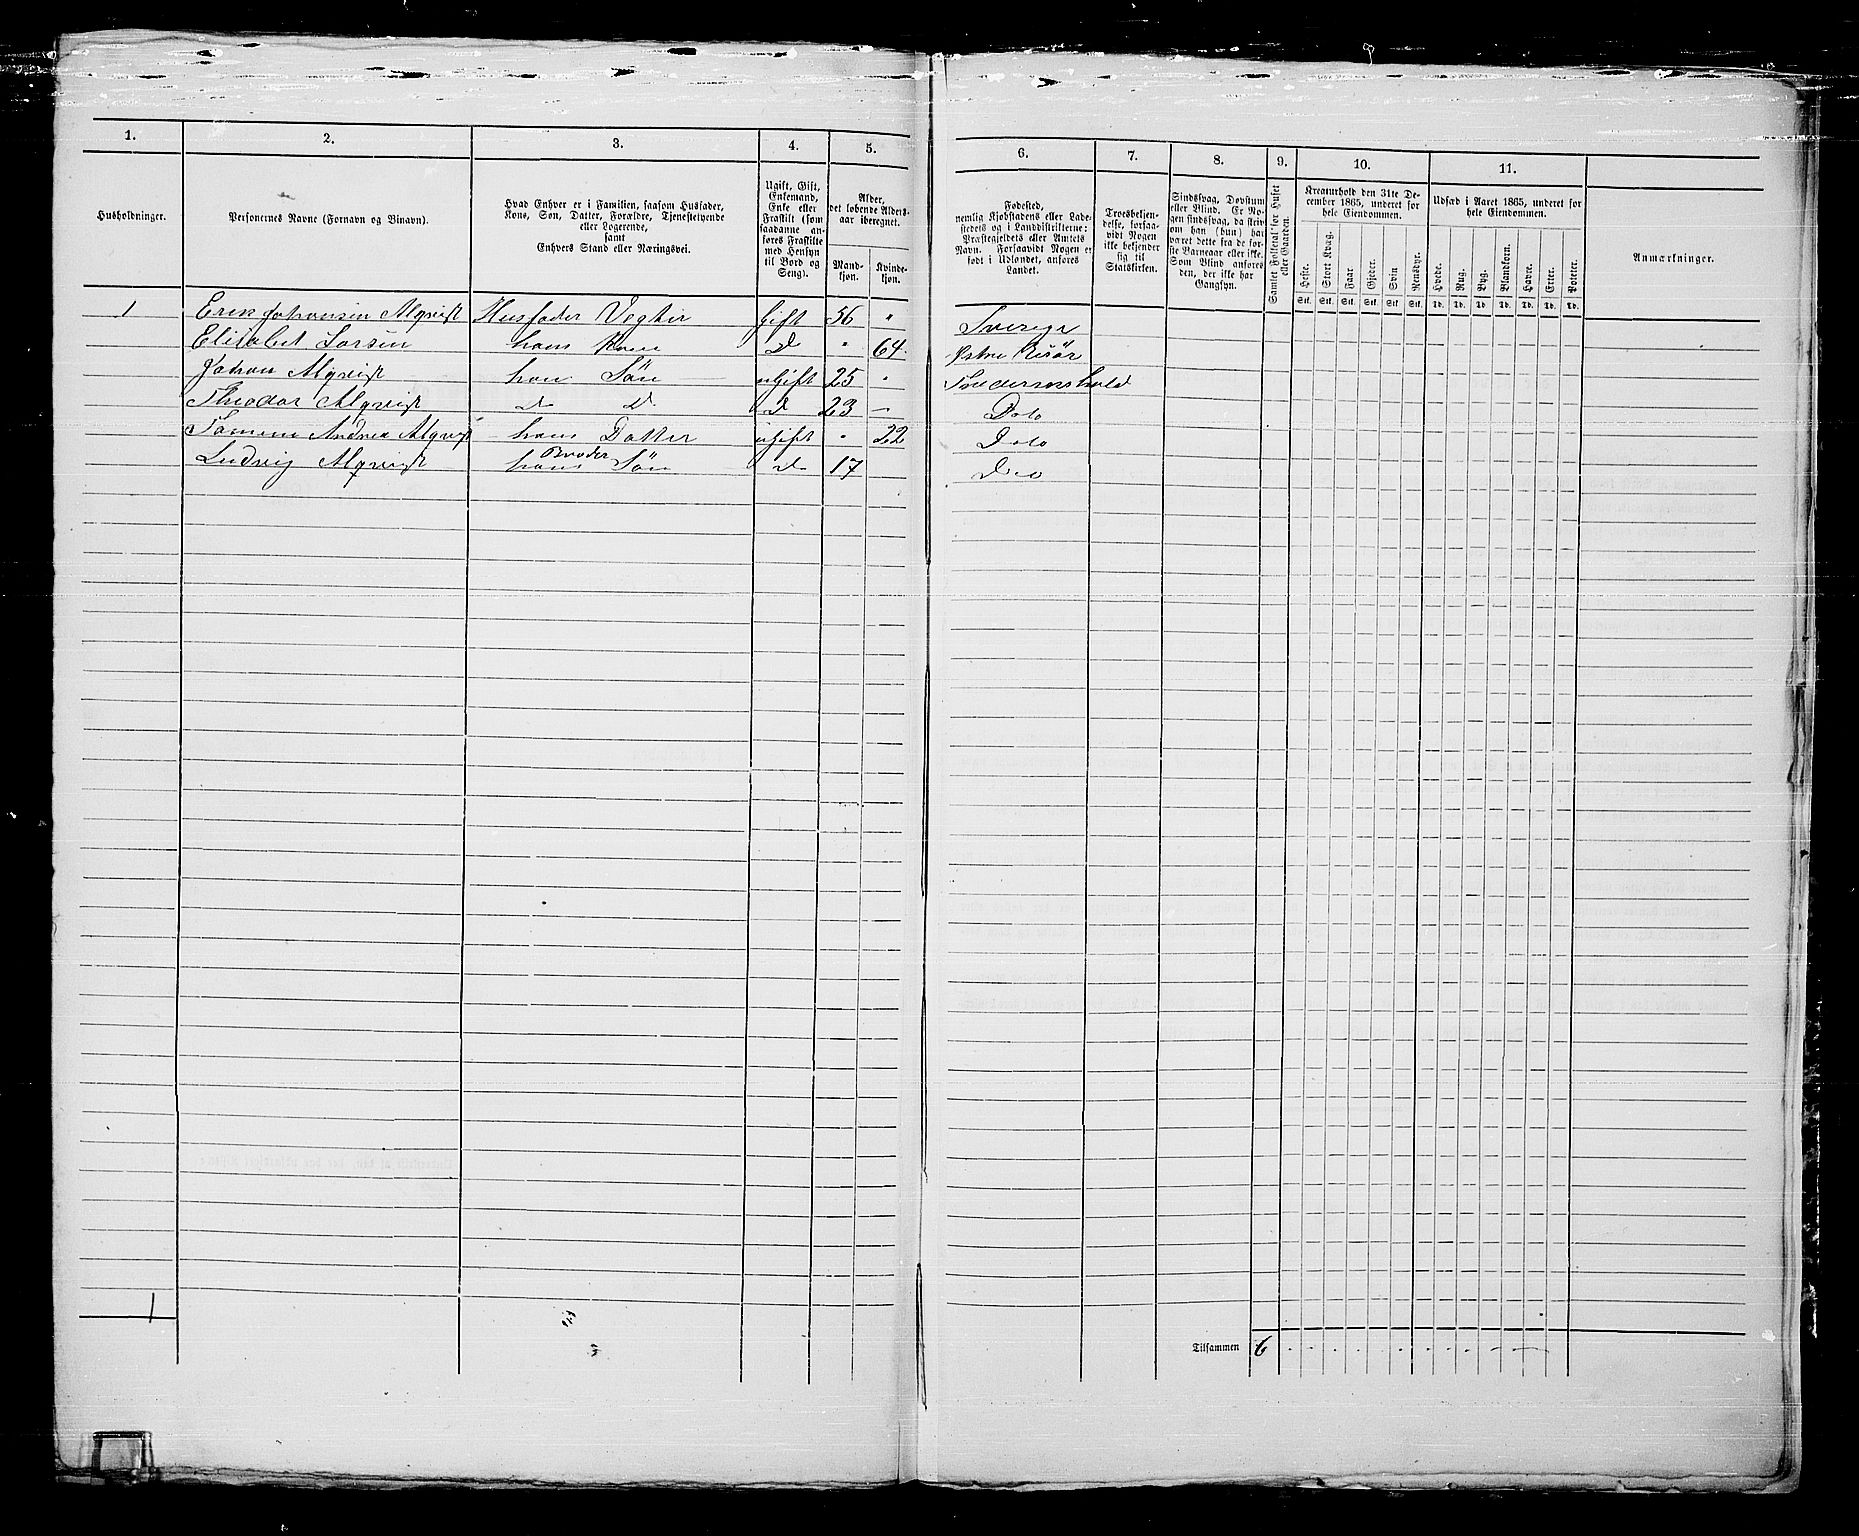 1.
2.
3.
4.
5.
Husholdninger.
Personernes Navne (Fornavn og Binavn).
Hvad Enhver er i Familien, saasom Husfader,
Kone, Søn, Datter, Forældre, Tjenestetyende
eller Logerende,
samt
Enhvers Stand eller Næringsvei.
Ugift, Gift,
Enkemand,
Enke eller
Fraskilt (som
saadanne an-
føres Fraskilte
med Hensyn
til Bord og
Seng).
Alder,
det løbende Alders-
aar iberegnet.
Mand-
kjøn.
Kvinde-
kjøn.
1 Erik Johansen Alqvist Husfader Vegter Gift 56 "
Elisabet Larsen hans Kone D " 64
Johan Alqvist hans Søn ugift 25 "
Theodor Alqvist D D D 23 –
Andrea Alqvist – hans Datter ugift " 22
Ludvig Alqvist hans Broder Søn D 17
1
6.
7.
8.
9.
10.
11.
Fødested,
nemlig Kjøbstadens eller Lade-
stedets og i Landdistrikterne:
Præstegjeldets eller Amtets
Navn. Forsaavidt Nogen er
født i Udlandet, anføres
Landet.
Troesbekjen-
delse, forsaa-
vidt Nogen
ikke bekjender
sig til
Statskirken.
Sindssvag, Døvstum
eller Blind. Er No-
gen sindssvag, da skriv
om han (hun) har
været dette fra de før-
ste Barneaar eller ikke.
Som Blind anføres
den, der ikke har
Gangsyn.
Samlet Folketal for Huset
eller Gaarden.
Kreaturhold den 31te De-
cember 1865, underet for
hele Eiendommen.
Heste. Stort Kvæg. Faar. Gjeder. Svin Rensdyr.
Stk. Stk. Stk. Stk. Stk. Stk.
Udsæd i Aaret 1865, underet for
hele Eiendommen.
Hvede. Rug. Byg. Blandkorn. Havre. Erter. Poteter.
Td. Td. Td. Td. Td. Td. Td.
Anmærkninger.
Sverige
Østre Risør
Do
Do
Do
Tilsammen 6